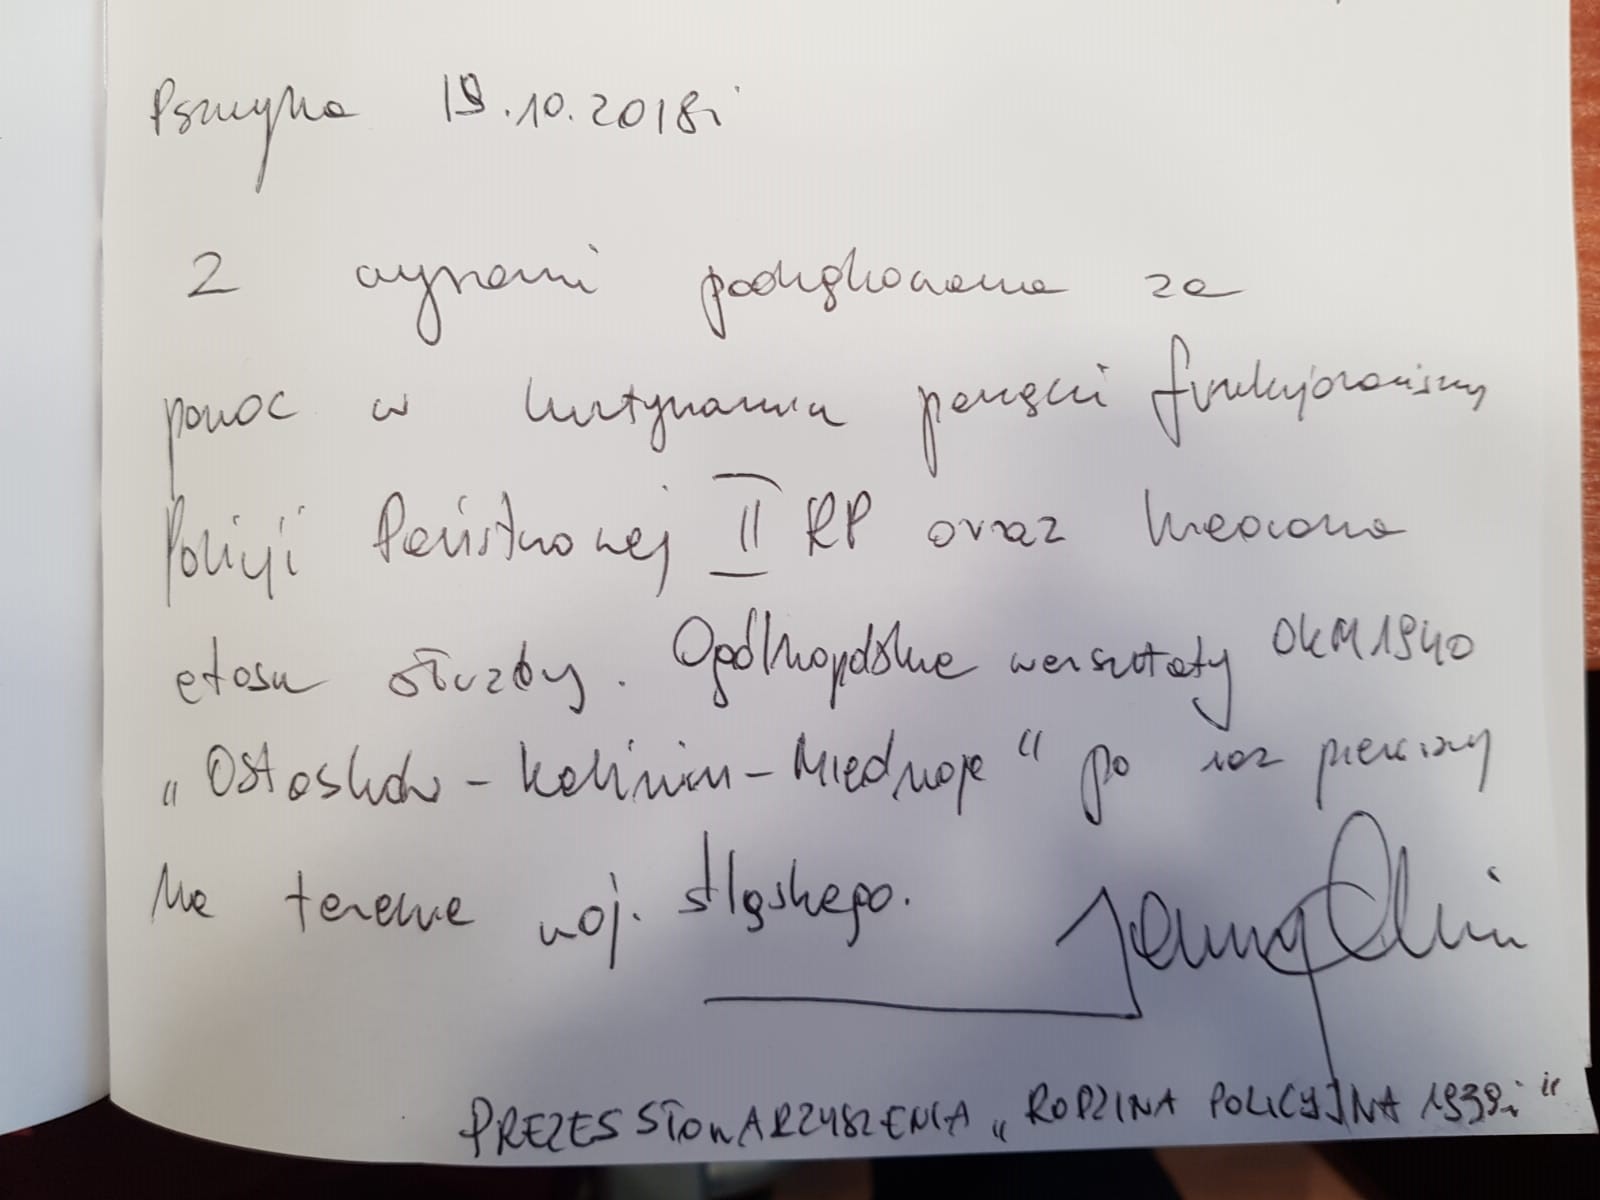 Pszczyna 19.10.2018r
Z wyrazami podziękowania za
pomoc w kultywowaniu pamięci funkcjonariuszy
Policji Państwowej II RP oraz
etosu służby. Ogólnopolskie warsztaty OKM 1940
„Ostaszków - Kalinin - Miednoje" po raz pierwszy
na terenie woj. śląskiego.
PREZES STOWARZYSZENIA „RODZINA POLICYJNA 1939r"